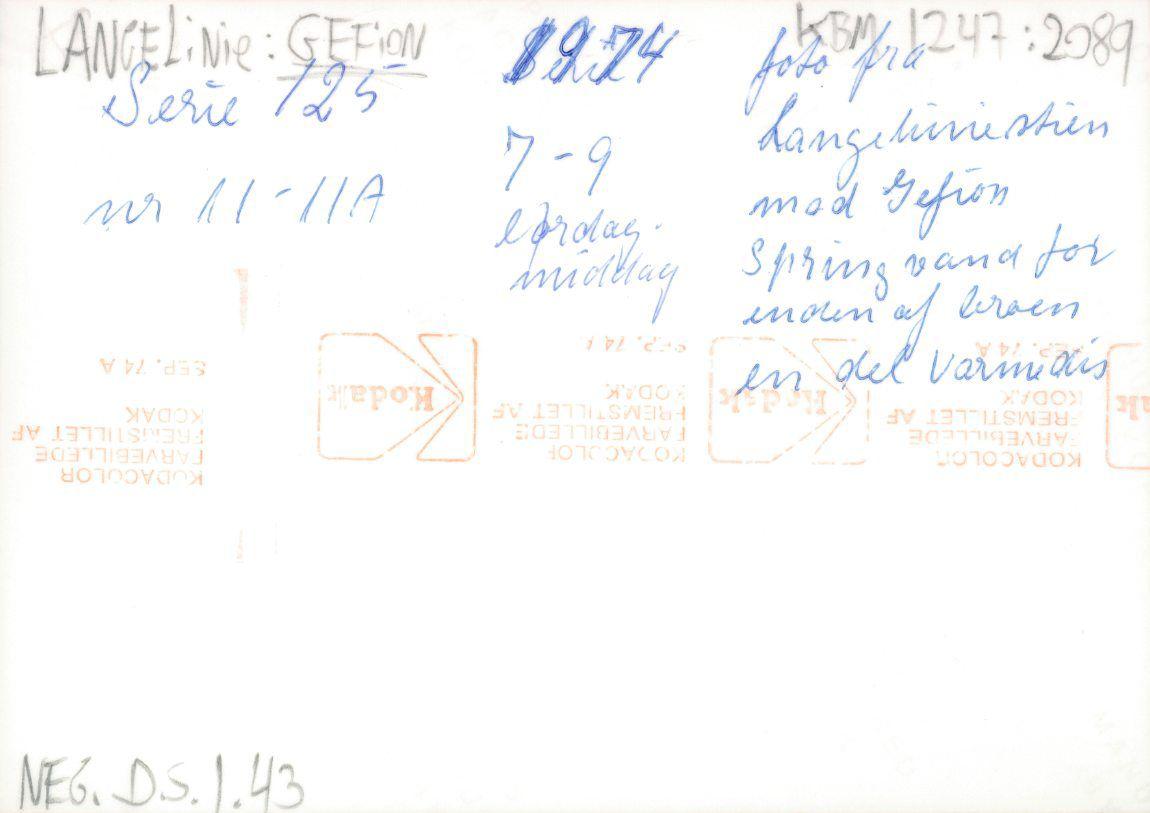 LANGELiNie: GEFiON
KBM 1247:2089
Serie 125
nr 11-11A
1974
7-9
lørdag.
middag
foto fra
Langeliniestien
mod Gefion
Springvand for
enden af broen
en del varmedis
SEP. 74 A
KODAK
FREMSTILLET AF
FARVEBILLEDE
KODACOLOR
Kodak
SEP. 74 A
KODAK
FREMSTILLET AF
FARVEBILLEDE
KODACOLOR
Kodak
SEP. 74 A
KODAK
FREMSTILLET AF
FARVEBILLEDE
KODACOLOR
NEG. D.S.1.43